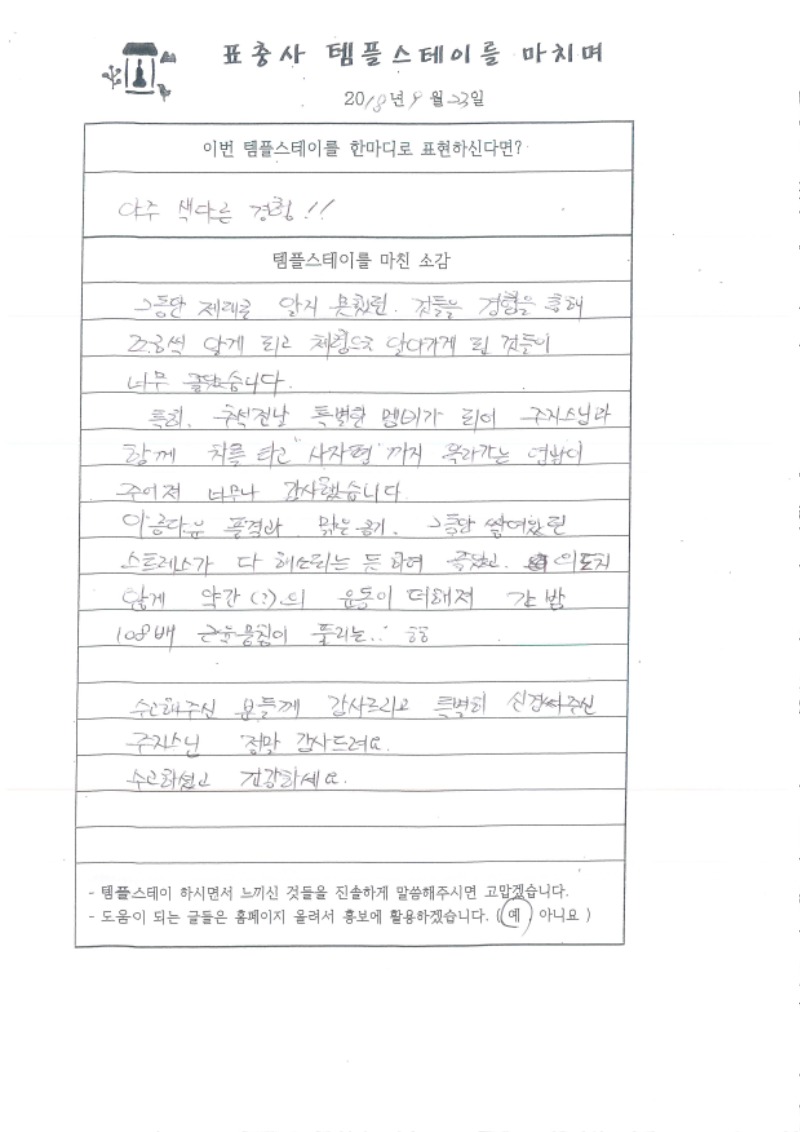 표충사 템플스테이를 마치며
2018년 9월 23일
이번 템플스테이를 한마디로 표현하신다면?
아주 색다른 경험!!
템플스테이를 마친 소감
그동안 제대로 알지 못했던. 것들을 경험을 통해
조금씩 알게 되고 체험으로 닮아가게 된 것들이
너무 좋았습니다.
특히, 추석전날 특별한 멤버가 되어 주지스님과
함께 차를 타고 "사자평"까지 올라가는 영광이
주어져 너무나 감사했습니다
아름다운 풍경과 맑은 공기. 그동안 쌓여왔던
스트레스가 다 해소되는 듯 하여 좋았고. 의도치
않게 약간(?)의 운동이 더해져 간밤
108배 근육뭉침이 풀리는.. ㅎㅎ
수고해주신 분들께 감사드리고 특별히 신경써주신
주지스님 정말 감사드려요.
수고하셨고 건강하세요.
- 템플스테이 하시면서 느끼신 것들을 진솔하게 말씀해주시면 고맙겠습니다.
- 도움이 되는 글들은 홈페이지 올려서 홍보에 활용하겠습니다. ( 예 아니요 )